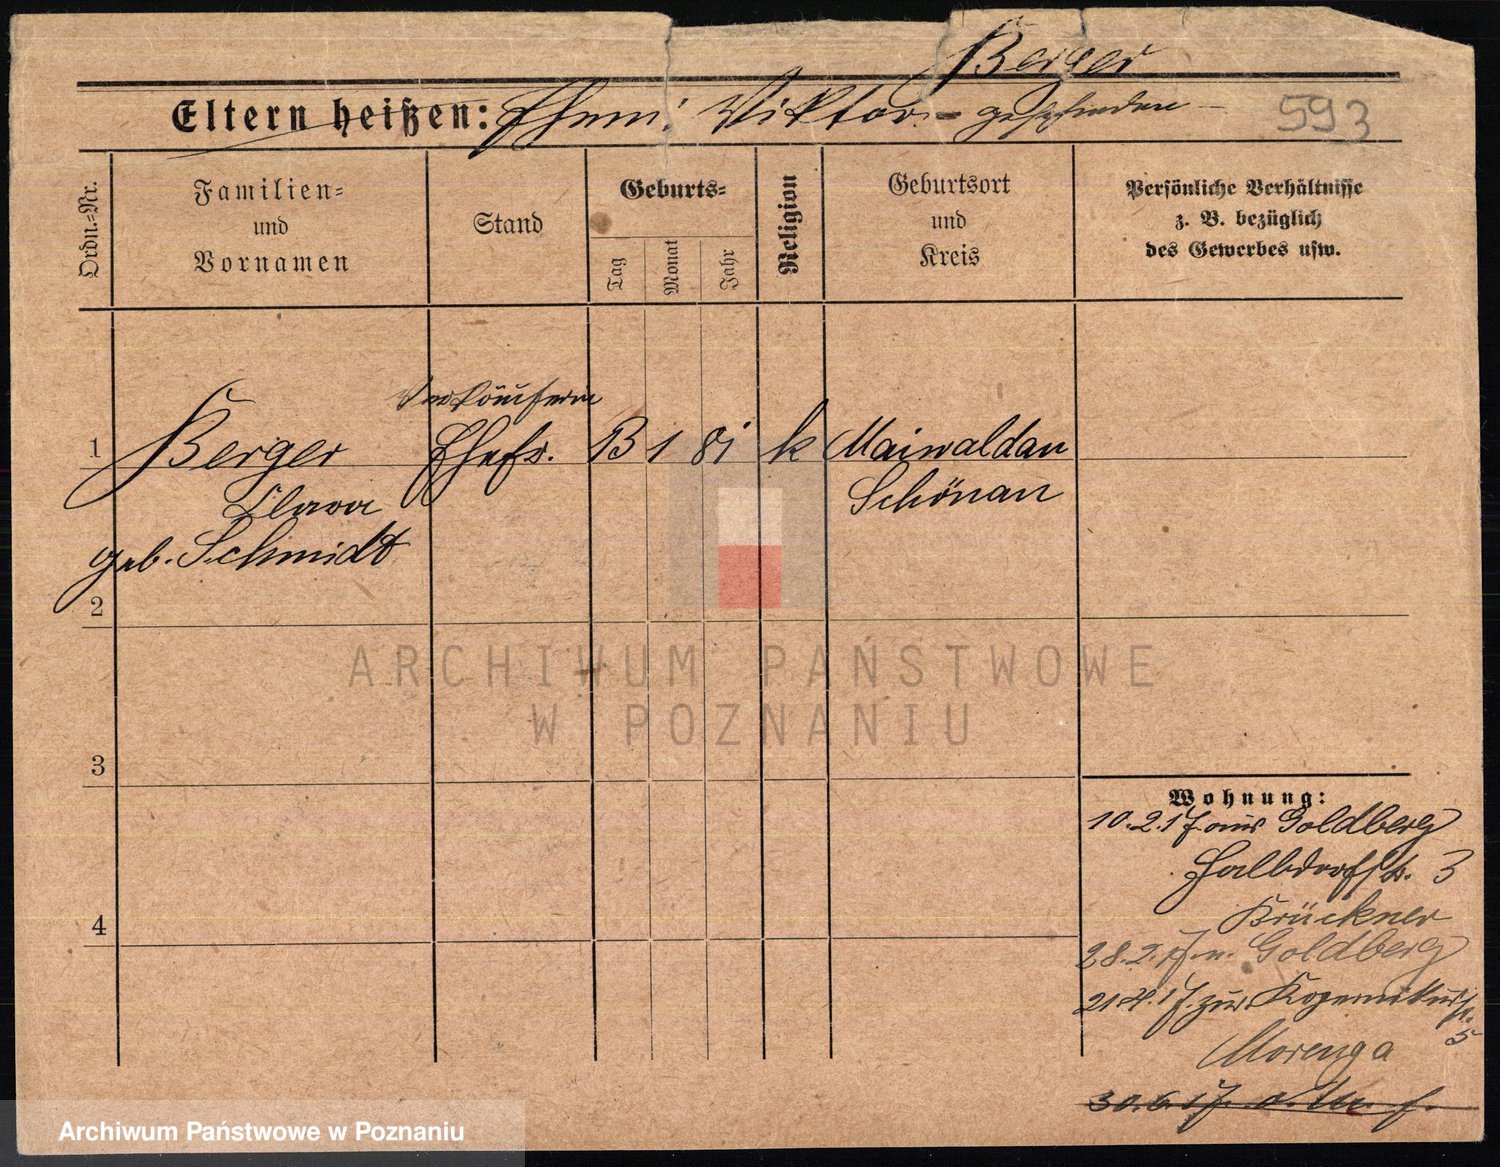 Berger
Eltern heißen: Ehem: Viktor - geschieden - 593
Ordn.=Nr.
Familien=
und
Vornamen
Stand
Geburts=
Tag
Monat
Jahr
Religion
Geburtsort
und
Kreis
Persönliche Verhältnisse
z. B. bezüglich
des Gewerbes usw.
Verkäuferin
1 Berger Ehefr. 13 1 81 k Maiwaldau
Clara Schönau
geb. Schmidt
2
3
4
Wohnung:
10.2.17. aus Goldberg
Halbdorfstr. 3
Brückner
28.2.17. n. Goldberg
21.4.17. zur. Kopernikusstr.
5
Morenga
30.6.17.
ARCHIWUM PAŃSTWOWE
W POZNANIU
Archiwum Państwowe w Poznaniu